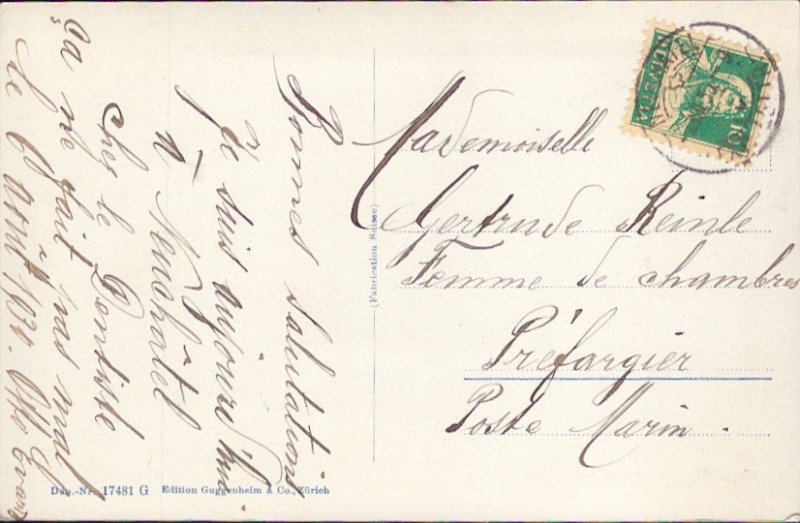 Bonnes salutations
Je suis aujourd'hui
à Neuchâtel
chez le Dentiste
Ça ne fait pas mal
le 6 août
Otto Evard
Mademoiselle
Gertrude Reinle
Femme de chambres
Préfargier
Poste Marin.
HELVETIA
10
(Fabrication Suisse)
Dép.-Nr. 17481 G Edition Guggenheim & Co., Zürich